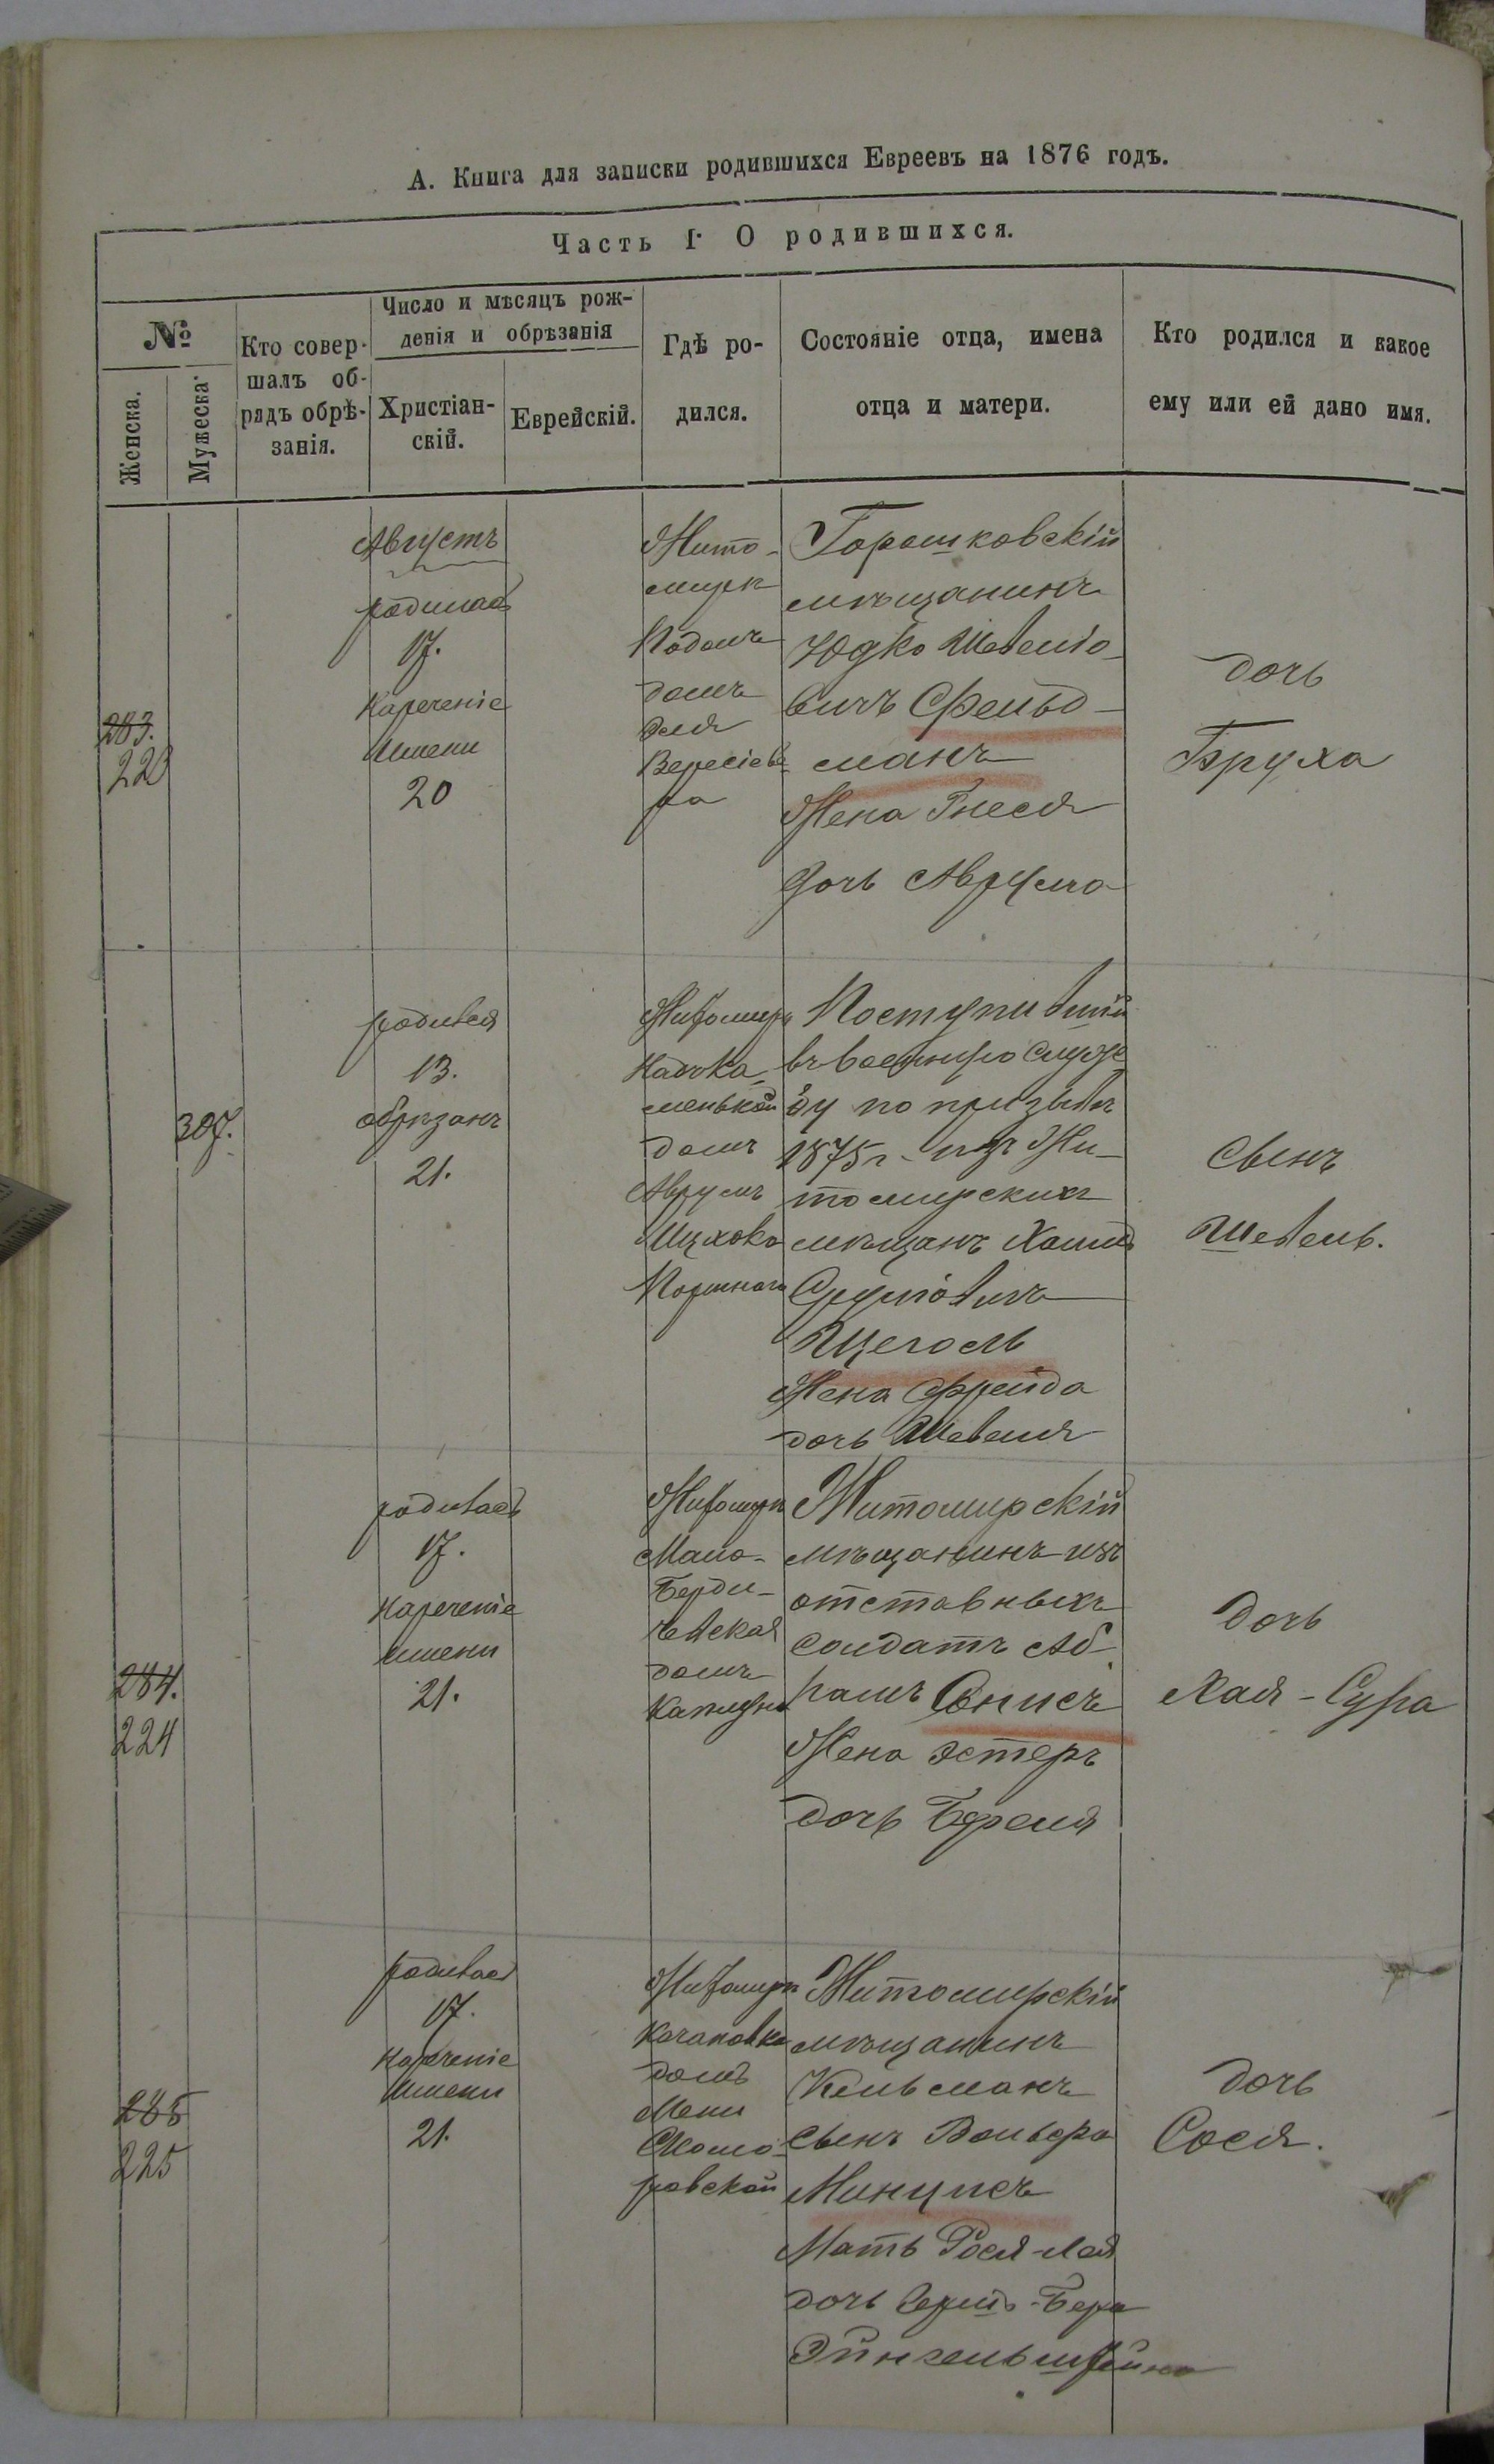 А. Книга для записки родившихся Евреевъ на 1876 годъ.
Часть I. О родившихся.
№
Женска.
Мужеска.
Кто совер-
шалъ об-
рядъ обрѣ-
занія.
Число и мѣсяцъ рож-
денія и обрѣзанія
Христіан-
скій.
Еврейскій.
Гдѣ ро-
дился.
Состояніе отца, имена
отца и матери.
Кто родился и какое
ему или ей дано имя.
283.
223
Августъ
родилась
17.
Нареченіе
имени
20
Жито-
миръ
Подолъ
домъ
Вересіев
ра
Горошковскій
мѣщанинъ
Юдко Шевеліо-
вичъ Фельд-
манъ
Жена Гнеся
Дочь Аврума
дочь
Бруха
307.
родился
13.
обрѣзанъ
21.
Житомиръ
домъ
Аврумъ
Поступившій
въ военную служ
бу по призыву
1875 г. изъ Жи-
томирскихъ
мѣщанъ Хаимъ
Сруліовичъ
Щеголь
Жена Фрейда
дочь Шевеля
Сынъ
Шевель.
284.
224
родилась
17.
Нареченіе
имени
21.
Житомиръ
Мало-
Берди-
чевская
домъ
Житомирскій
мѣщанинъ изъ
отставныхъ
солдатъ Аб
рамъ Снисъ
Жена Эстеръ
дочь Ефреля
дочь
Хая-Сура
285
225
родилась
17.
нареченіе
имени
21.
Житомиръ
Качановка
домъ
Мени
Скомо-
ровской
Житомирскій
мѣщанинъ
Кельманъ
сынъ Вольфа
Минцисъ
Мать Рося-Лея
дочь Герш-Бера
дочь
Сося.